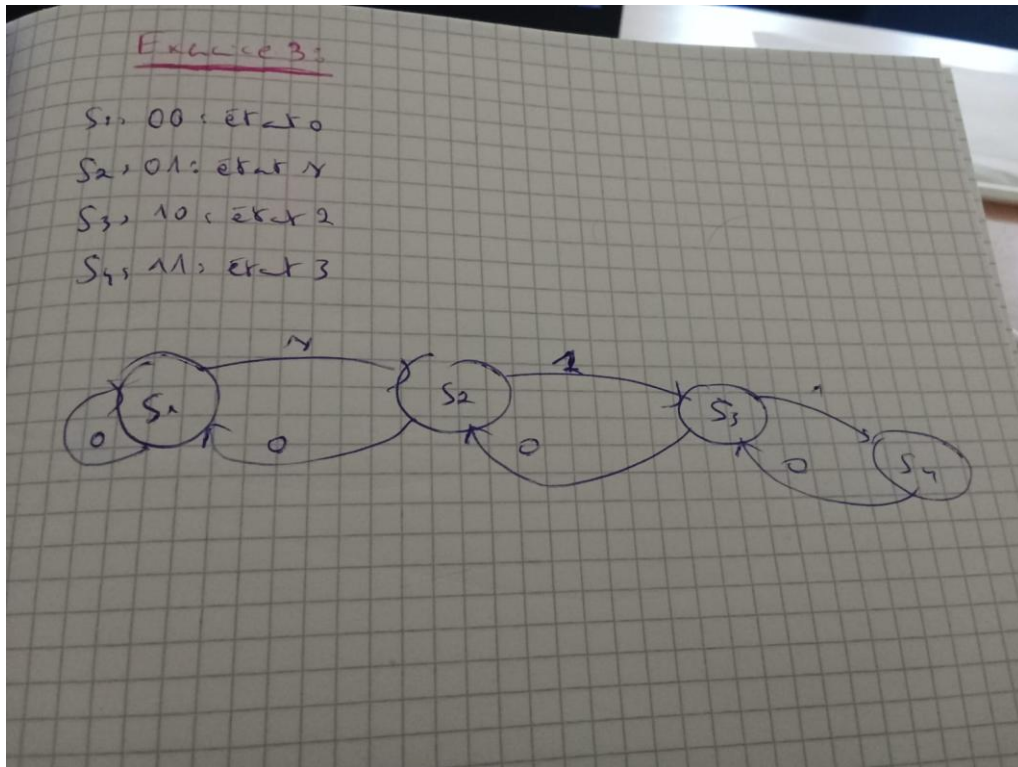 Exercice 3:
S1, 00: état 0
S2, 01: état 1
S3, 10: état 2
S4, 11: état 3
1 1 1
S1 S2 S3 S4
0 0 0 0